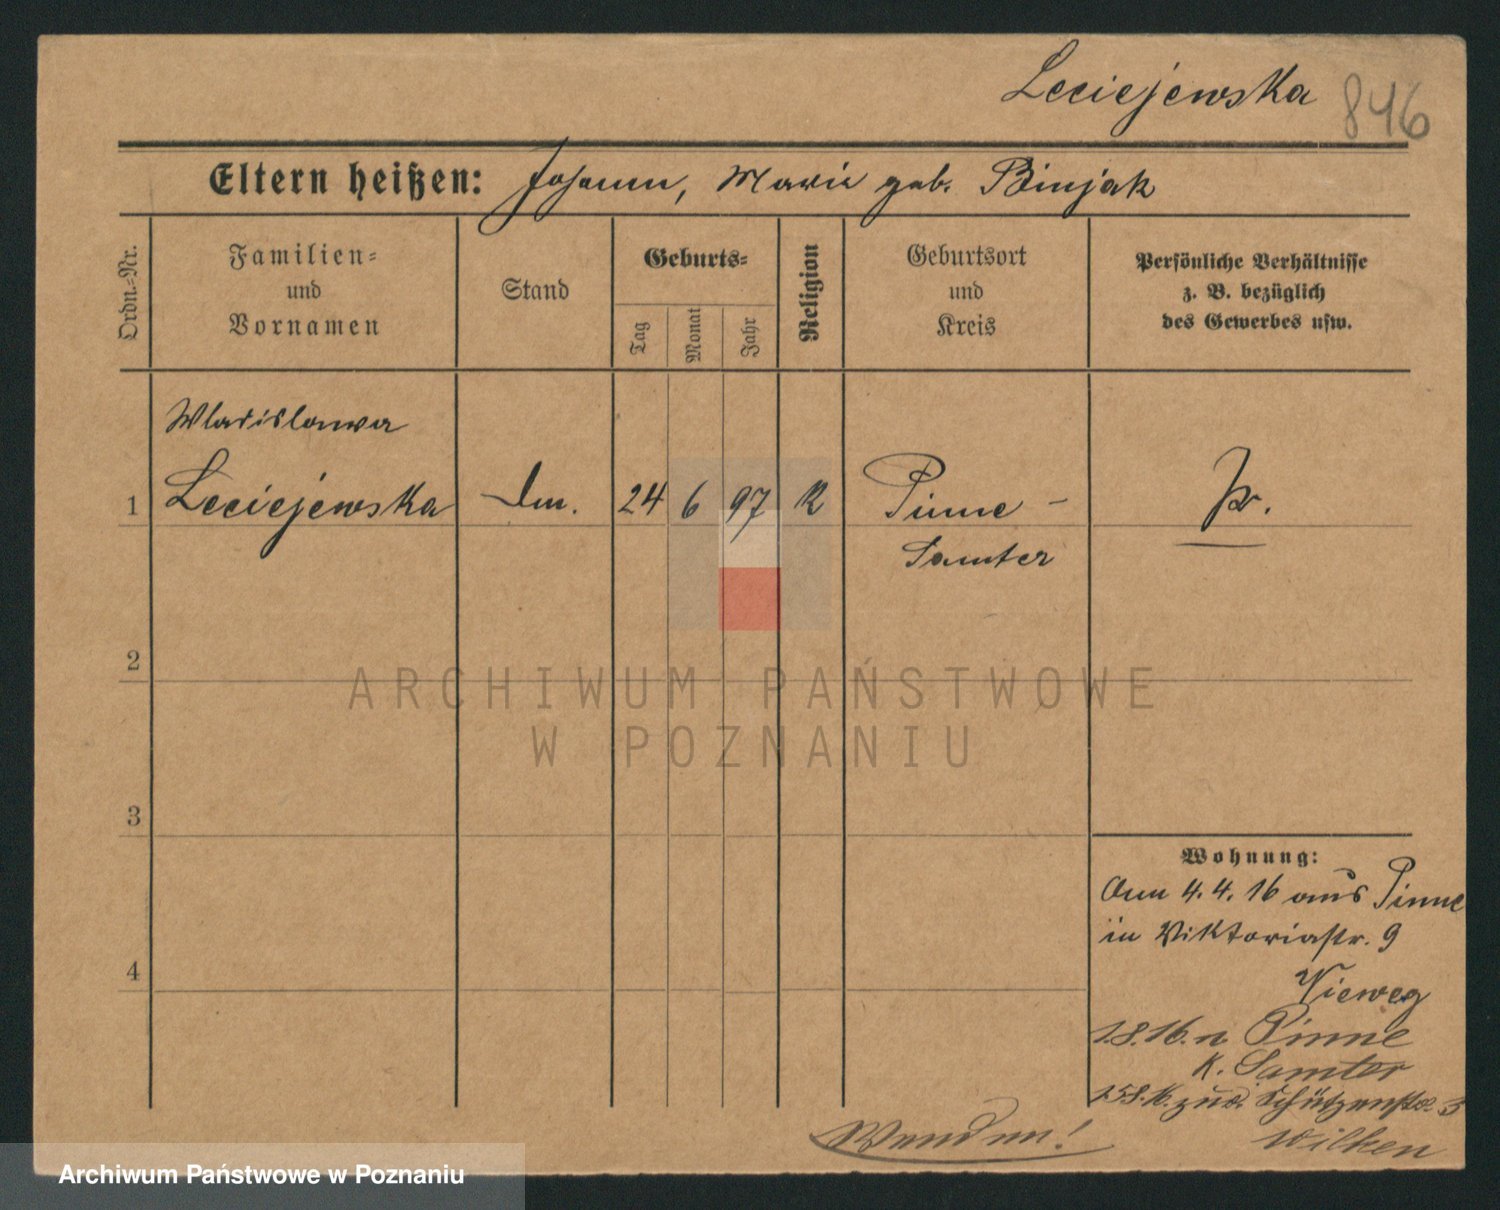 Leciejewska 846
Eltern heißen: Johann, Marie geb. Binjak
Ordn.-Nr.
Familien=
und
Vornamen
Stand
Geburts=
Tag
Monat
Jahr
Religion
Geburtsort
und
Kreis
Persönliche Verhältnisse
z. B. bezüglich
des Gewerbes usw.
Wladislawa
1 Leciejewska 24 6 97 K Pinne -
Samter
2
3
4
Wohnung:
4. 4. 16 aus Pinne
in Viktoriastr. 9
Vieweg
1.8.16. n. Pinne
K. Samter
15.8.16. zud. Schützenstr. 3
Wilken
Wenden!
ARCHIWUM PAŃSTWOWE
W POZNANIU
Archiwum Państwowe w Poznaniu